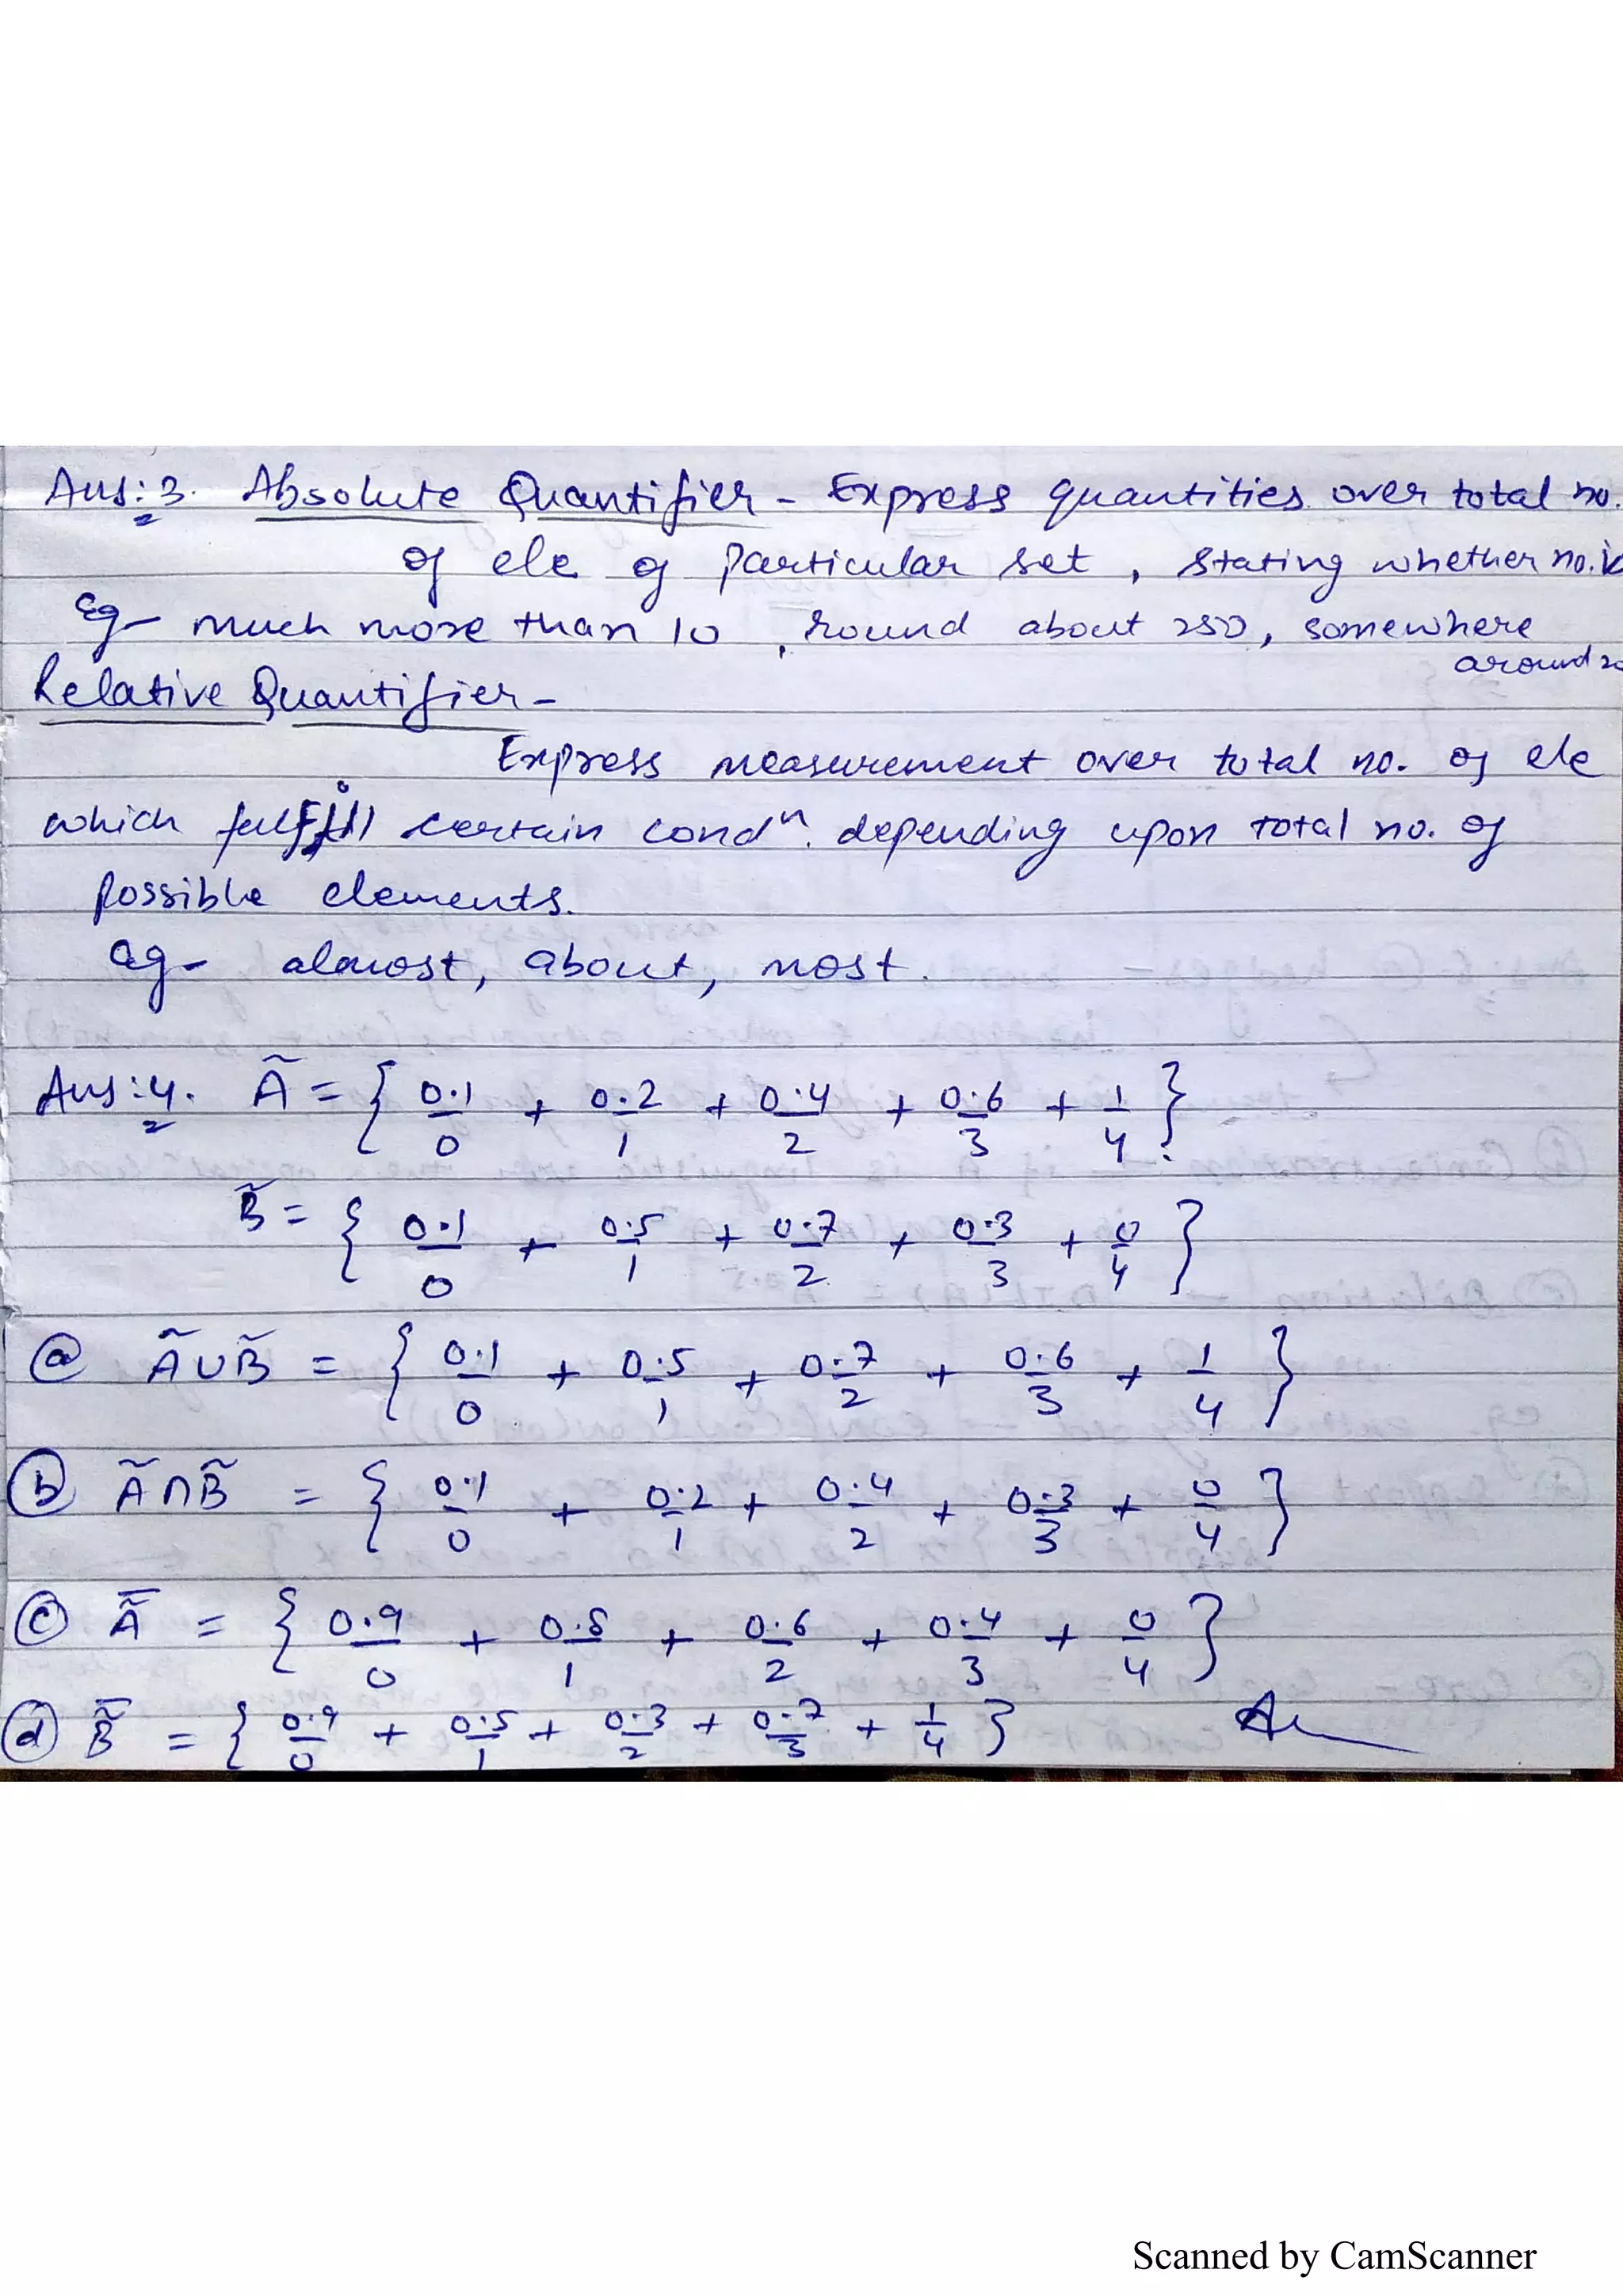 Ans:3. Absolute Quantifier - Express quantities over total no.
of ele of particular set, stating whether no. is
Eg- much more than 10, round about 250, somewhere
around 20
Relative Quantifier -
Express measurement over total no. of ele
which fulfill certain condⁿ. depending upon total no. of
possible elements.
eg- almost, about, most.
Ans:4. Ã = { 0.1/0 + 0.2/1 + 0.4/2 + 0.6/3 + 1/4 }
B̃ = { 0.1/0 + 0.5/1 + 0.7/2 + 0.3/3 + 0/4 }
ⓐ Ã∪B̃ = { 0.1/0 + 0.5/1 + 0.7/2 + 0.6/3 + 1/4 }
ⓑ Ã∩B̃ = { 0.1/0 + 0.2/1 + 0.4/2 + 0.3/3 + 0/4 }
ⓒ Ã̅ = { 0.9/0 + 0.8/1 + 0.6/2 + 0.4/3 + 0/4 }
ⓓ B̃̅ = { 0.9/0 + 0.5/1 + 0.3/2 + 0.7/3 + 1/4 }
Scanned by CamScanner